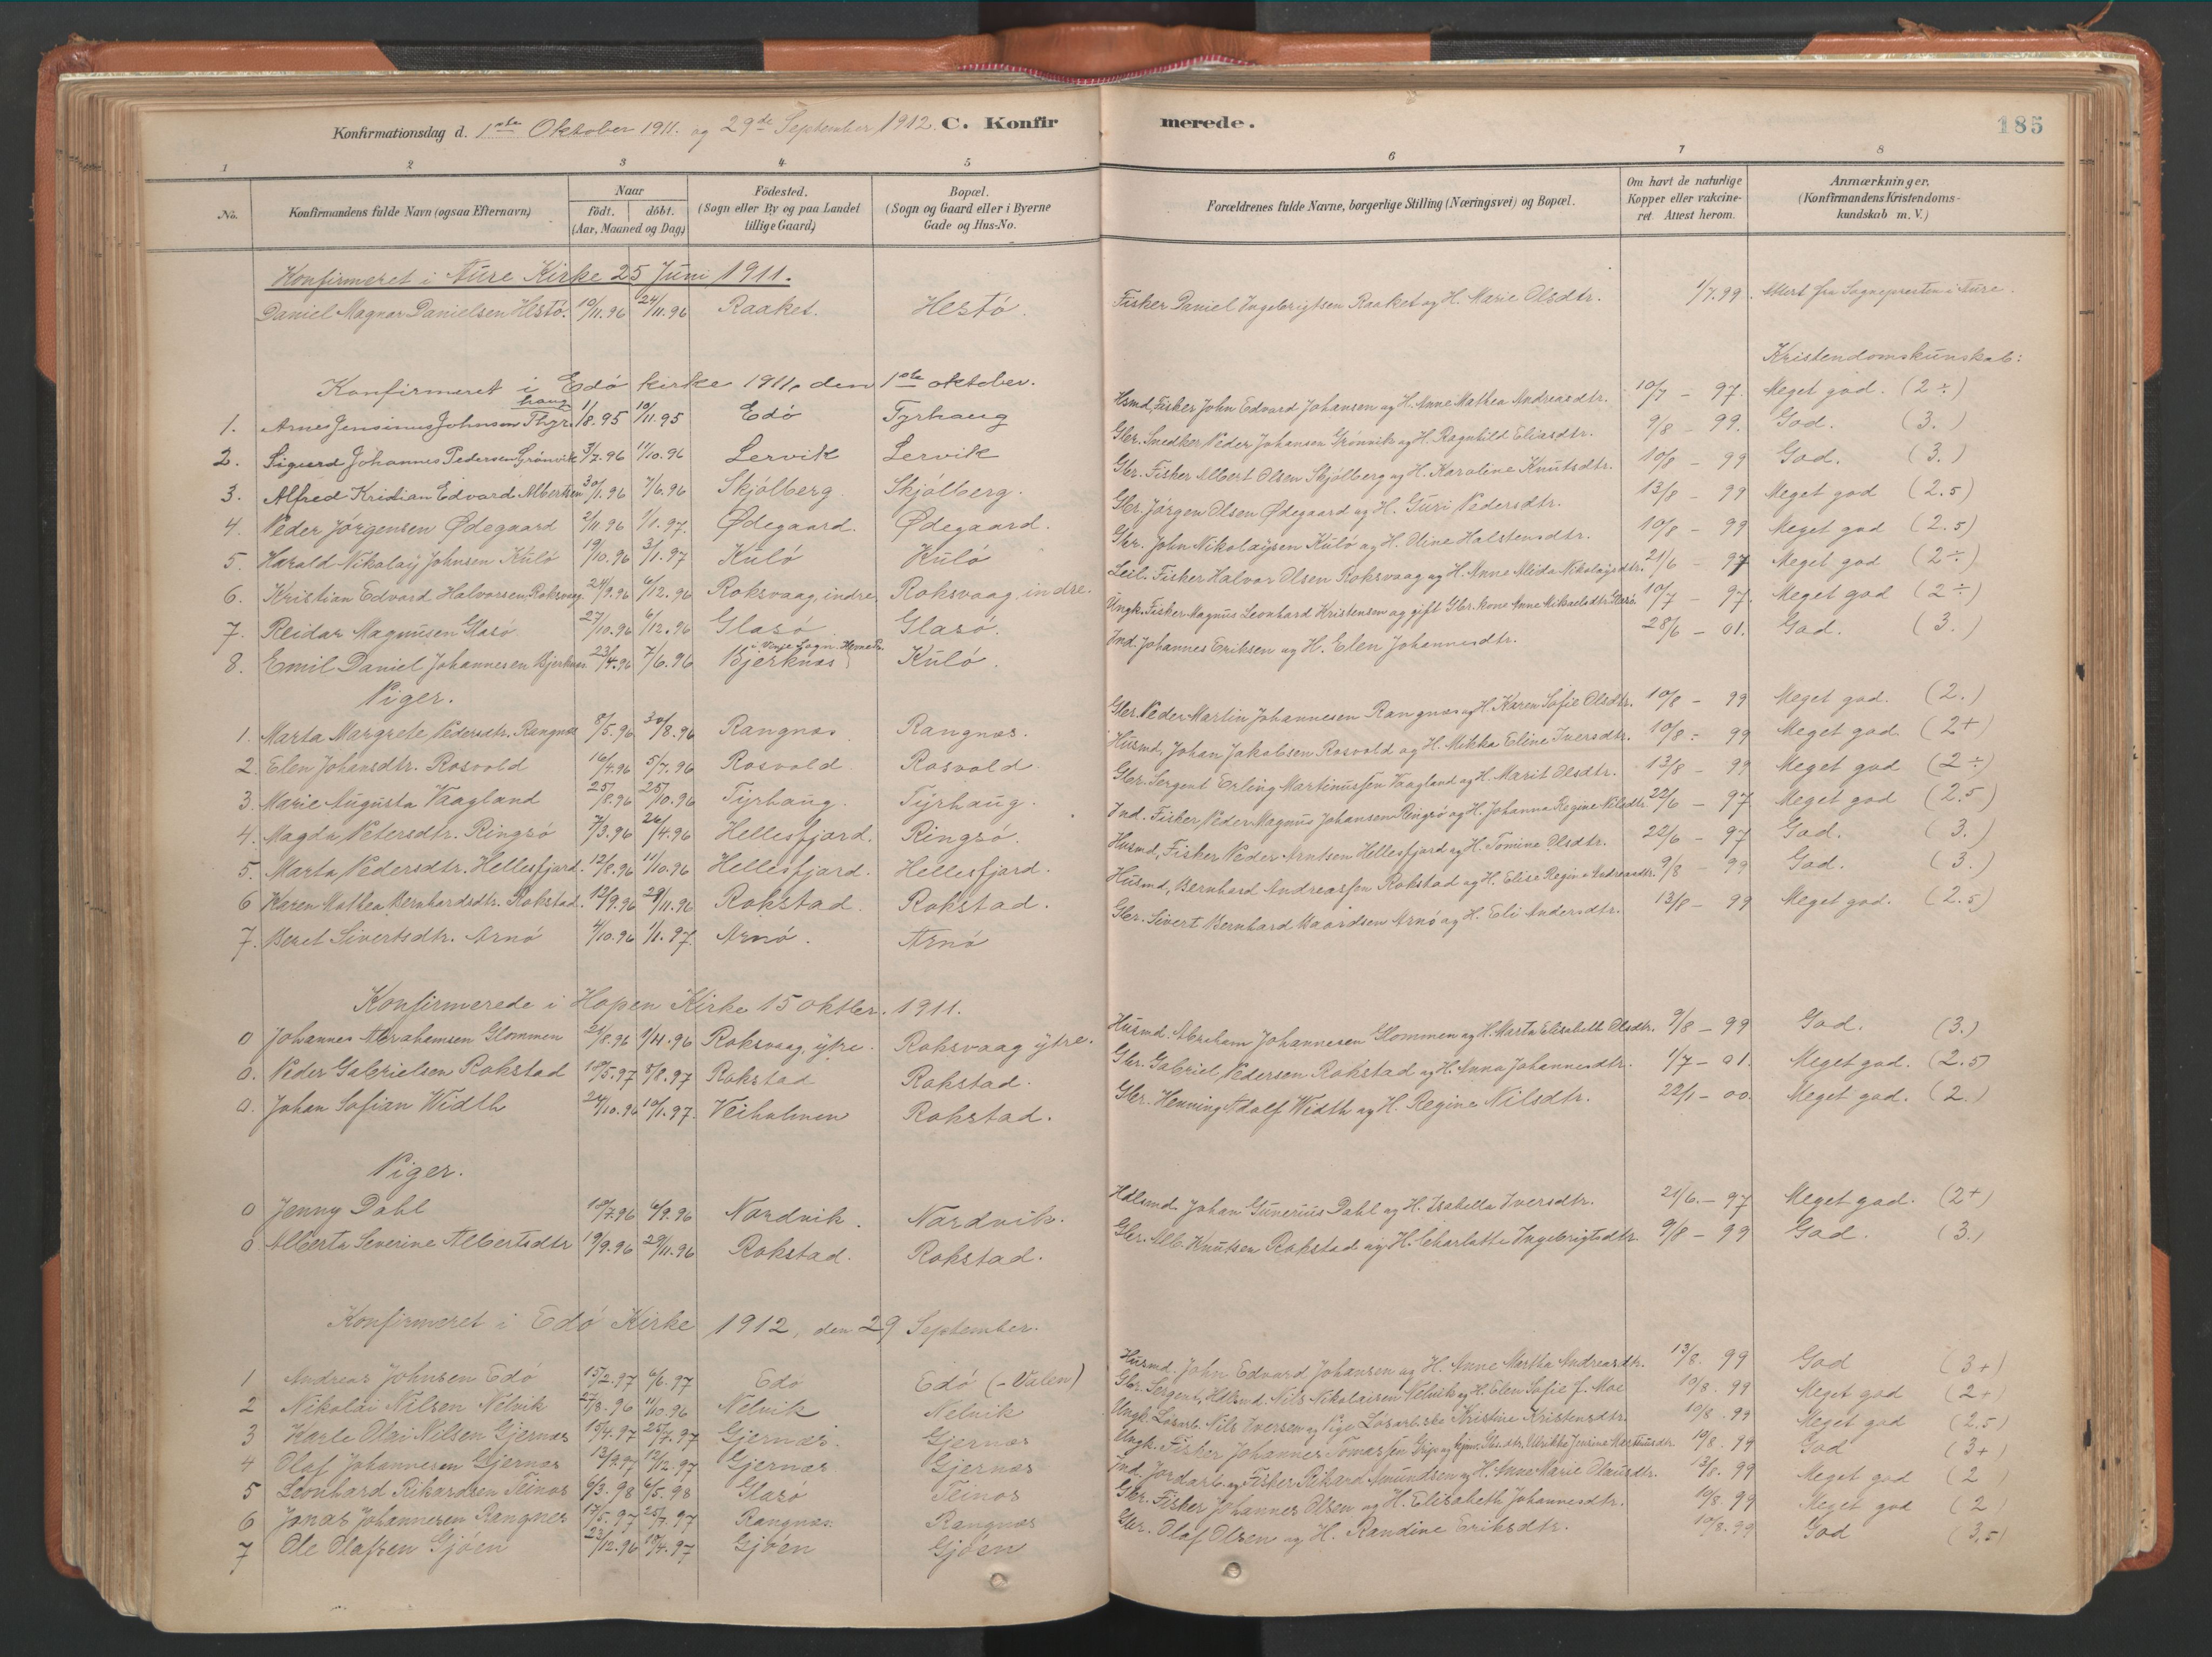 Konfirmationsdag d. 1ste Oktober 1911. og 29de September 1912. C. Konfirmerede. 185
1 2 3 4 5 6 7 8
No. Konfirmandens fulde Navn (ogsaa Efternavn) Naar födt. döbt. (Aar, Maaned og Dag) Födested. (Sogn eller By og paa Landet tillige Gaard) Bopæl. (Sogn og Gaard eller i Byerne Gade og Hus-No. Forældrenes fulde Navne, borgerlige Stilling (Næringsvei) og Bopæl. Om havt de naturlige Kopper eller vakcineret. Attest herom. Anmærkninger. (Konfirmandens Kristendomskundskab m. V.)
Konfirmeret i Aure Kirke 25 Juni 1911.
Daniel Magnar Danielsen Hestö. 10/11.96 24/11.96 Raaket. Hestö. Fisker Daniel Ingebrigtsen Raaket og H. Marie Olsdtr. 1/7.99. Attest fra Sognepresten i Aure.
Kristendomskunskab:
Konfirmeret i Edö kirke 1911, den 1ste oktober.
1. Arnes Jensinus Johnsen Thyrhaug 1/8.95 10/11.95 Edö Tyrhaug Hsmd, Fisker John Edvard Johansen og H. Anne Mathea Andreasdtr. 10/7 - 97. Meget god. (2÷)
2. Sigurd Johannes Pedersen Grönvik 3/7.96 11/10.96 Lervik Lervik Gbr. Snedker Peder Johansen Grönvik og H. Ragnhild Eliasdtr. 9/8 - 99. God. (3.)
3. Alfred Kristian Edvard Albertsen 30/1.96 7/6.96 Skjölberg. Skjölberg. Gbr. Fisker Albert Olsen Skjölberg og H. Karoline Knutsdtr. 10/8 - 99 God. (3.)
4. Peder Jörgensen Ødegaard 2/11.96 1/1.97. Ødegaard. Ødegaard. Gbr. Jörgen Olsen Ødegaard og H. Guri Pedersdtr. 13/8 - 99 Meget god (2.5)
5. Harald Nikolay Johnsen Kulö 19/10.96 3/1.97 Kulö Kulö Gbr. John Nikolaysen Kulö og H. Oline Halstensdtr. 10/8 - 99 Meget god (2.5)
6. Kristian Edvard Halvorsen, Roksvaag. 24/9.96 6/12.96 Roksvaag, indre. Roksvaag, indre. Leil. Fisker Halvor Olsen Roksvaag og H. Anne Alida Nikolaysdtr. 21/6 - 97 Meget god (2÷)
7. Reidar Magnusen Glasö 27/10.96 6/12.96 Glasö Glasö. Ungk. Fisker Magnus Leonhard Kristensen og gift Gbr. kone Anne Mikaelsdtr Glasö. 10/7 - 97. Meget god (2÷)
8. Emil Daniel Johannesen Bjerknæs 23/4.96 7/6.96 Bjerknæs i Vinje Sogn. Hemne P. Kulö. Ind. Johannes Eriksen og H. Elen Johannesdtr. 28/6 - 01. God. (3.)
Piger.
1. Marta Margrete Pedersdtr. Rangnæs 8/5.96 30/8.96 Rangnæs Rangnæs. Gbr. Peder Martin Johannesen Rangnæs og H. Karen Sofie Olsdtr. 10/8 - 99 Meget god. (2.)
2. Elen Johansdtr. Rosvold 16/4.96 5/7.96 Rosvold Rosvold Husmd, Johan Jakobsen Rosvold og H. Mikka Eline Iversdtr. 10/8 - 99 Meget god. (2+)
3. Marie Augusta Vaagland 25/8.96 25/10.96 Tyrhaug. Tyrhaug. Gbr. Sergent Erling Martinussen Vaagland og H. Marit Olsdtr. 13/8 - 99 Meget god (2÷)
4. Magda Petersdtr. Ringsö 7/3.96 26/4.96 Hellesfjord. Ringsö. Ind. Fisker, Peder Magnus Johansen Ringsö og H. Johanna Regine Nilsdtr. 22/6 - 97 Meget god (2.5)
5. Marta Pedersdtr. Hellesfjord. 12/8.96 11/10.96 Hellesfjord. Hellesfjord. Husmd, Fisker Peder Arntsen Hellesfjord og H. Tomine Olsdtr. 22/6 - 97 God. (3.)
6 Karen Mathea Bernhardsdtr. Rokstad. 12/9.96 29/11.96 Rokstad. Rokstad. Husmd, Bernhard Andreassen Rokstad og H. Elise Regine Andreasdtr. 9/8 - 99 God. (3.)
7. Beret Sivertsdtr. Arnö 4/10.96 1/1.97. Arnö. Arnö Gbr. Sivert Bernhard Baardsen Arnö og H. Eli Andersdtr. 13/8 - 99 Meget god. (2.5)
Konfirmerede i Hopen Kirke 15 oktber. 1911.
0 Johannes Abrahamsen Glommen 29/8.96 1/11.96 Roksvaag, ytre. Roksvaag ytre. Husmd. Abraham Johannesen Glommen og H. Marta Elisabeth Olsdtr. 9/8 - 99 God. (3.)
0. Peder Gabrielsen Rokstad 18/5.97 8/8.97 Rokstad Rokstad. Gbr. Gabriel Pedersen Rokstad og H. Anna Johannesdtr. 1/7 - 01. Meget god. (2.5)
0. Johan Sofian Width 24/10.96 10/1.97. Veiholmen Rokstad. Gbr. Henning Adolf Width og H. Regine Nilsdtr. 22/1 - 00. Meget god. (2.)
Piger.
0 Jenny Dahl 18/7.96 6/9.96 Nordvik. Nordvik. Hdlsmd. Johan Gunerius Dahl og H. Isabella Iversdtr. 21/6. - 97 Meget god. (2+)
0 Alberta Severine Albertsdtr 19/9.96 29/11.96 Rokstad. Rokstad. Gbr. Alb. Knutsen Rokstad og H. Charlotte Ingebrigtsdtr. 9/8 - 99 God. (3.)
Konfirmeret i Edö Kirke 1912, den 29 September.
1 Andreas Johnsen Edö 15/2.97 6/6.97 Edö Edö (-Valen) Husmd, John Edvard Johansen og H. Anne Martha Andreasdtr. 13/8. 99 God (3+)
2 Nikolai Nilsen Nelvik 27/8.96 11/10.96 Nelvik Nelvik Gbr. Sergent, Hdlsmd. Nils Nikolaisen Nelvik og H. Elen Sofie f. Moe 10/8. 99 Meget god (2+)
3 Karle Olai Nilsen Gjernæs 15/4.97 25/7.97 Gjernæs. Gjernæs Ungk. Løsarb. Nils Iversen og Pige Løsarbske Kristine Kristensdtr. 10/8. 99 Meget god (2.5)
4 Olaf Johannesen Gjernæs 12/12.97 Gjernæs Gjernæs Ungk. Fisker Johannes Tomassen Grip og Ulrikke Jensine 10/8. 99 God (3+)
5 Leonhard Rikardsen Teinæs 6/3.98 6/5.98 Glasö Teinæs Ind. Jordarb. og Fisker Rikard Amundsen og H. Anne Marie Olausdtr. 13/8. 99 Meget god (2)
6 Jonas Johannesen Rangnes 17/5.97 25/7.97 Rangnæs. Rangnæs Gbr. Fisker Johannes Olsen og H. Elisabeth Johannesdtr. 10/8. 99 Meget god (2)
7 Ole Olafsen Gjöen 23/12.96 19/4.97 Gjöen Gjöen Gbr. Olaf Olsen og H. Randine Eriksdtr. 10/8.99 God (3,5)